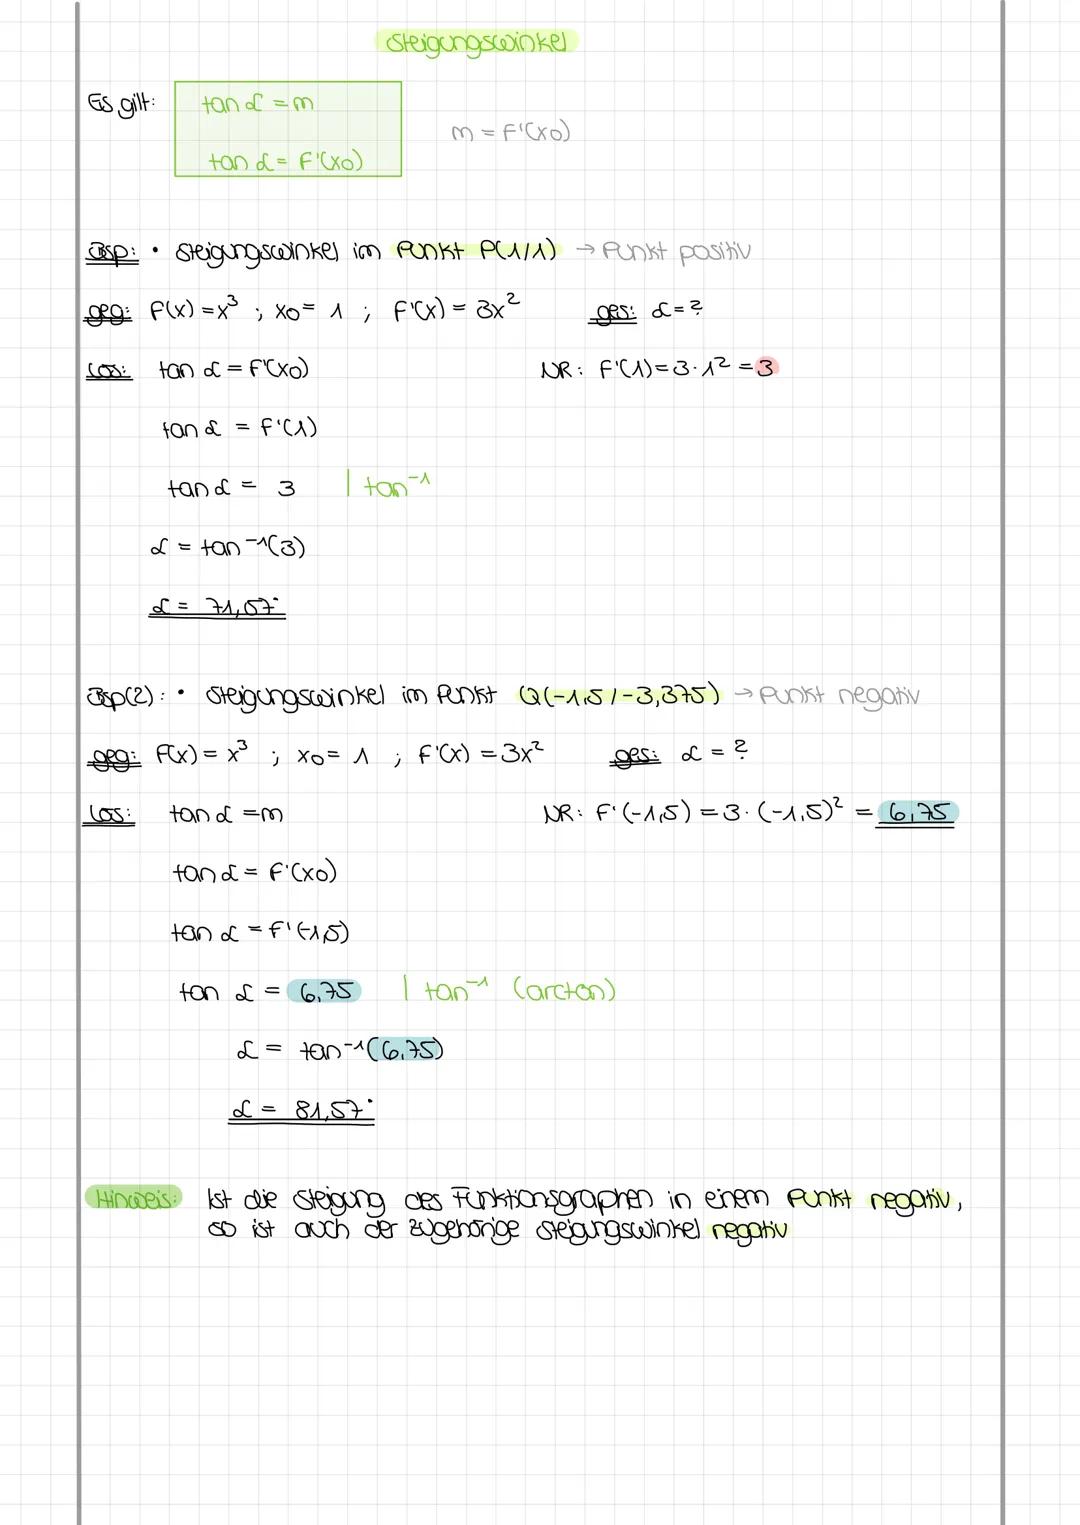 Steigungswinkel
Es gilt: tan α = m
m = f'(x0)
tan α = f'(x0)
Bsp: • Steigungswinkel im Punkt P(1/1) → Punkt positiv
geg: f(x) = x³ ; x0 = 1 ; f'(x) = 3x² ges: α = ?
Lös: tan α = f'(x0) NR: f'(1) = 3·1² = 3
tan α = f'(1)
tan α = 3 | tan⁻¹
α = tan⁻¹(3)
α = 71,57°
Bsp(2): • Steigungswinkel im Punkt Q(-1,5/-3,375) → Punkt negativ
geg: f(x) = x³ ; x0 = 1 ; f'(x) = 3x² ges: α = ?
Lös: tan α = m NR: f'(-1,5) = 3·(-1,5)² = 6,75
tan α = f'(x0)
tan α = f'(-1,5)
tan α = 6,75 | tan⁻¹ (arctan)
α = tan⁻¹(6,75)
α = 81,57°
Hinweis: Ist die Steigung des Funktionsgraphen in einem Punkt negativ,
so ist auch der zugehörige Steigungswinkel negativ